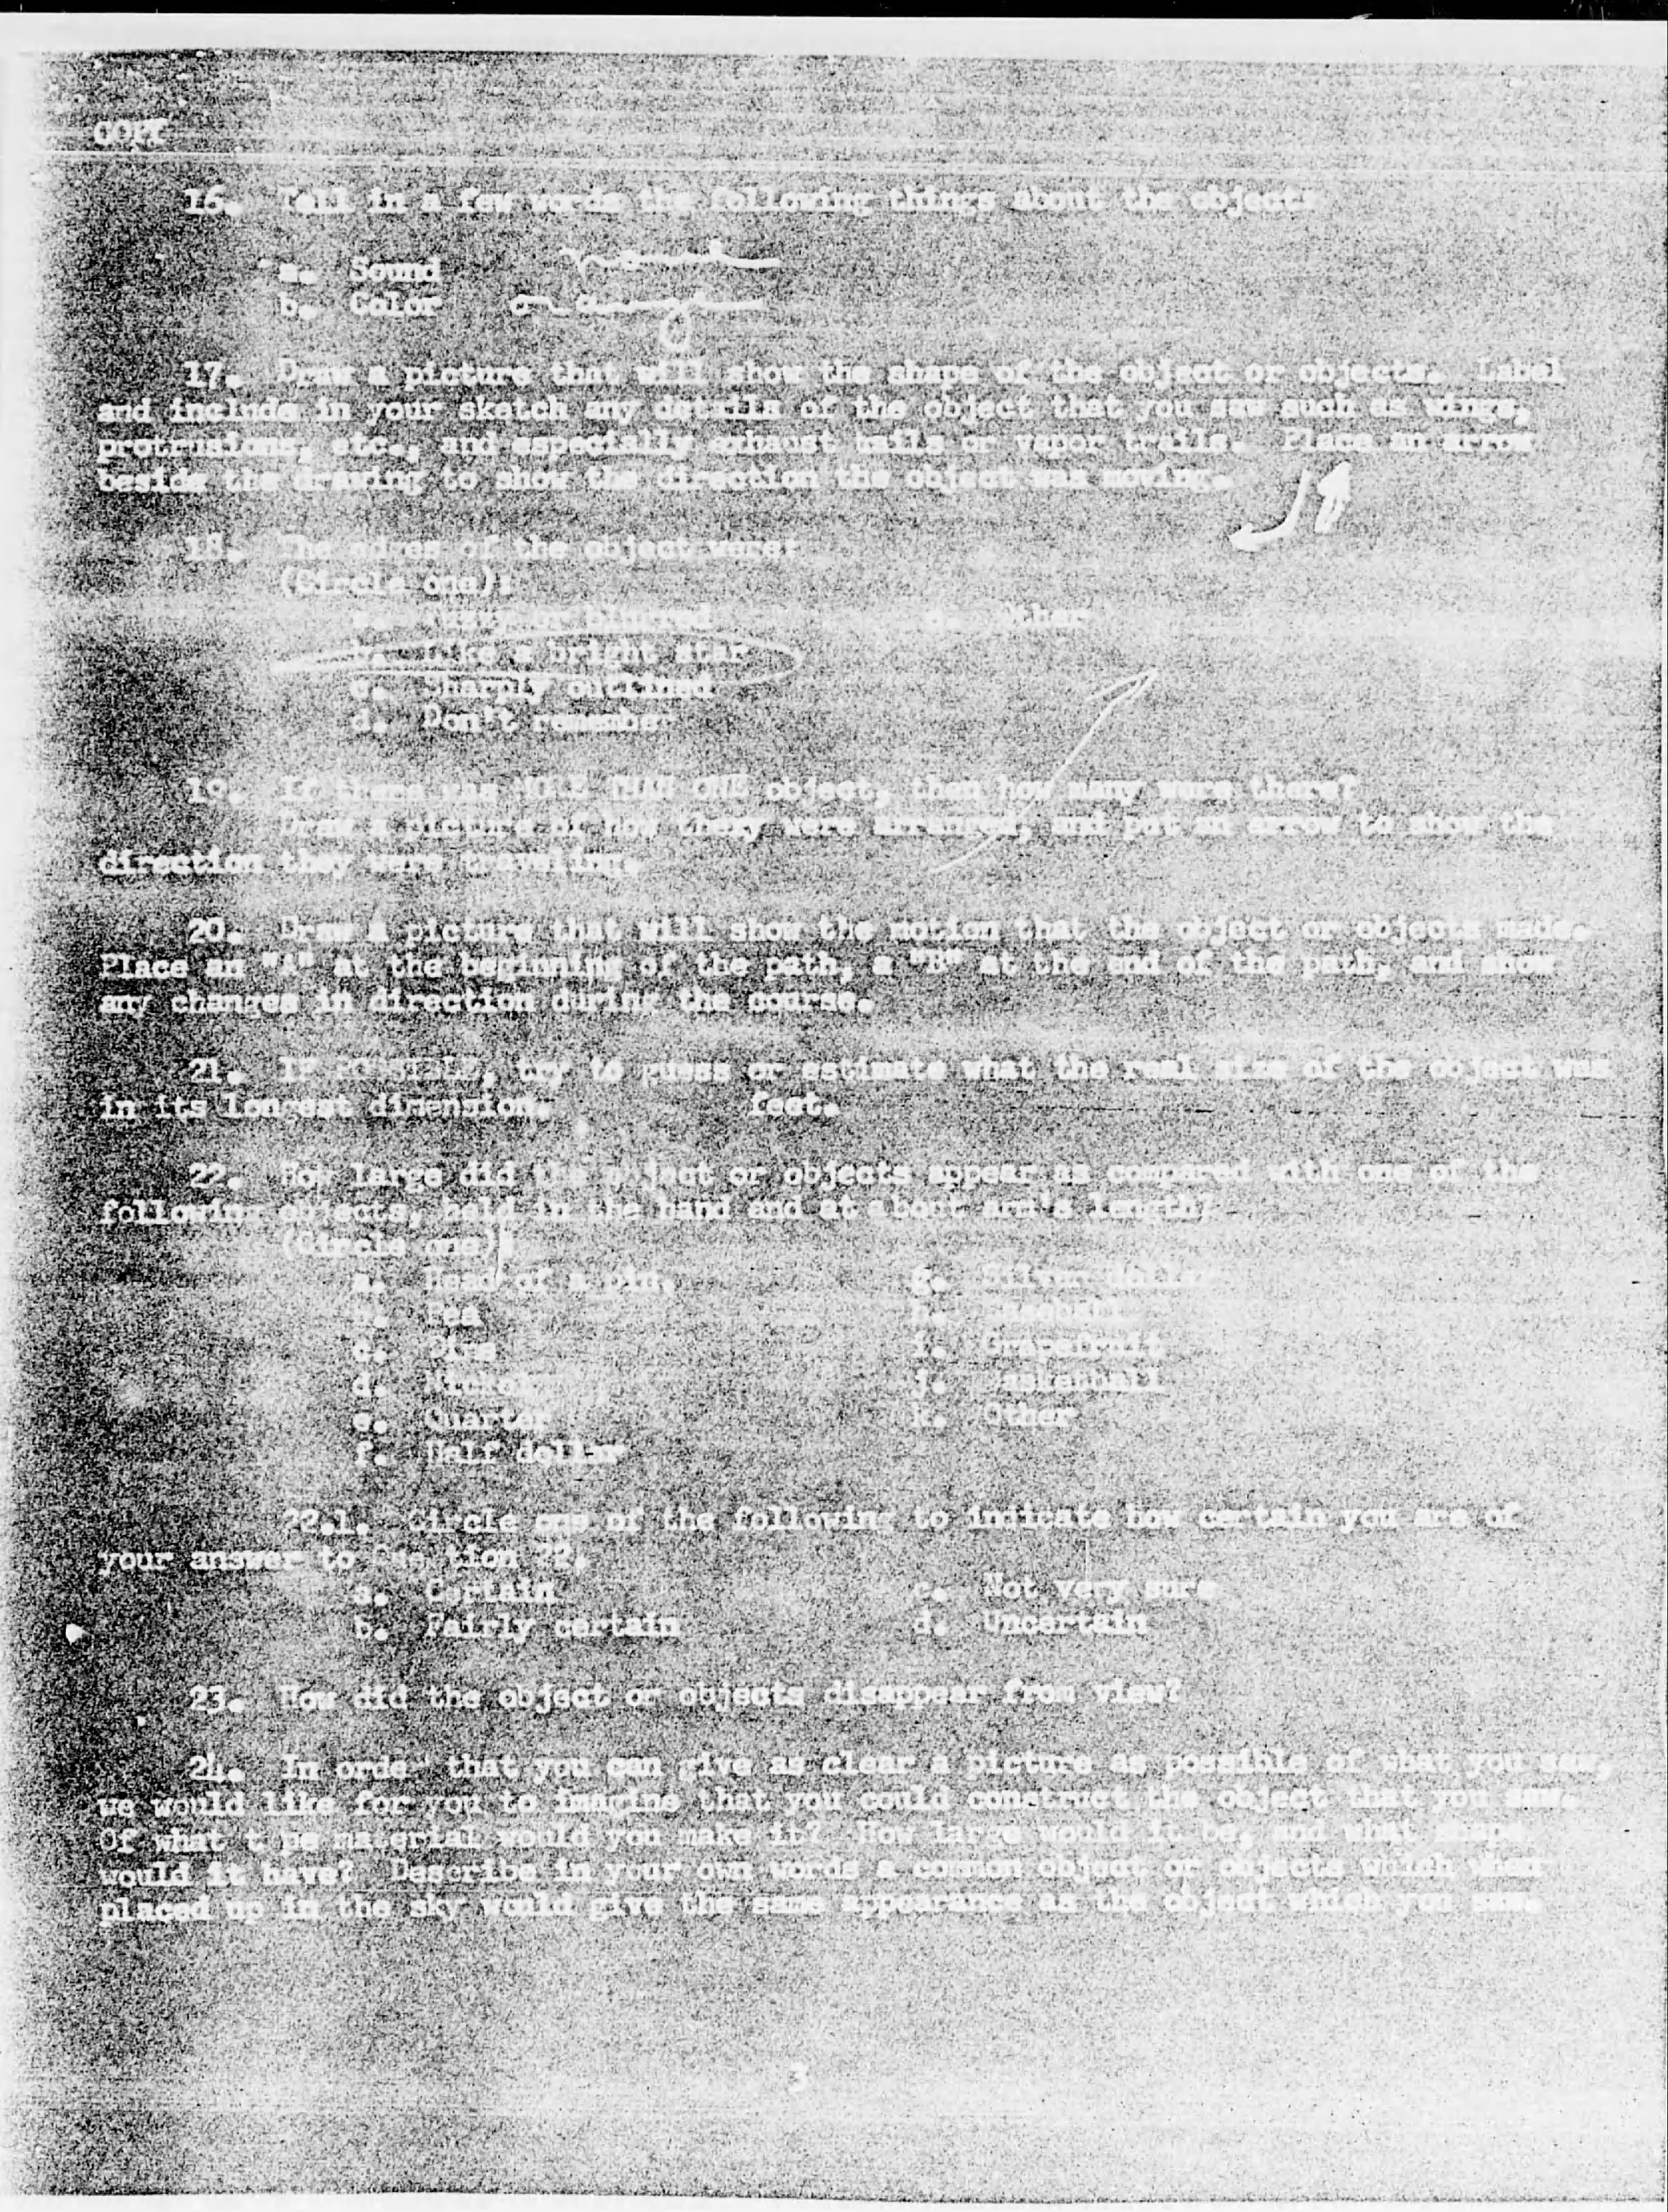 COPY
16. Tell in a few words the following things about the object:
a. Sound
b. Color
17. Draw a picture that will show the shape of the object or objects. Label
and include in your sketch any details of the object that you saw such as wings,
protrusions, etc., and especially exhaust trails or vapor trails. Place an arrow
beside the drawing to show the direction the object was moving.
18. The edges of the object were:
(Circle one):
a. Fuzzy or blurred e. Other
b. Like a bright star
c. Sharply outlined
d. Don't remember
19. If there was MORE THAN ONE object, then how many were there?
Draw a picture of how they were arranged, and put an arrow to show the
direction they were traveling.
20. Draw a picture that will show the motion that the object or objects made.
Place an "A" at the beginning of the path, a "B" at the end of the path, and show
any changes in direction during the course.
21. IF POSSIBLE, try to guess or estimate what the real size of the object was
in its longest dimension. feet.
22. How large did the object or objects appear as compared with one of the
following objects, held in the hand and at about arm's length?
(Circle one):
a. Head of a pin. g. Silver dollar
b. Pea h. Baseball
c. Dime i. Grapefruit
d. Nickel j. Basketball
e. Quarter k. Other
f. Half dollar
22.1. Circle one of the following to indicate how certain you are of
your answer to Question 22.
a. Certain c. Not very sure
b. Fairly certain d. Uncertain
23. How did the object or objects disappear from view?
24. In order that you can give as clear a picture as possible of what you saw,
we would like for you to imagine that you could construct the object that you saw.
Of what type material would you make it? How large would it be, and what shape
would it have? Describe in your own words a common object or objects which when
placed up in the sky would give the same appearance as the object which you saw.
3